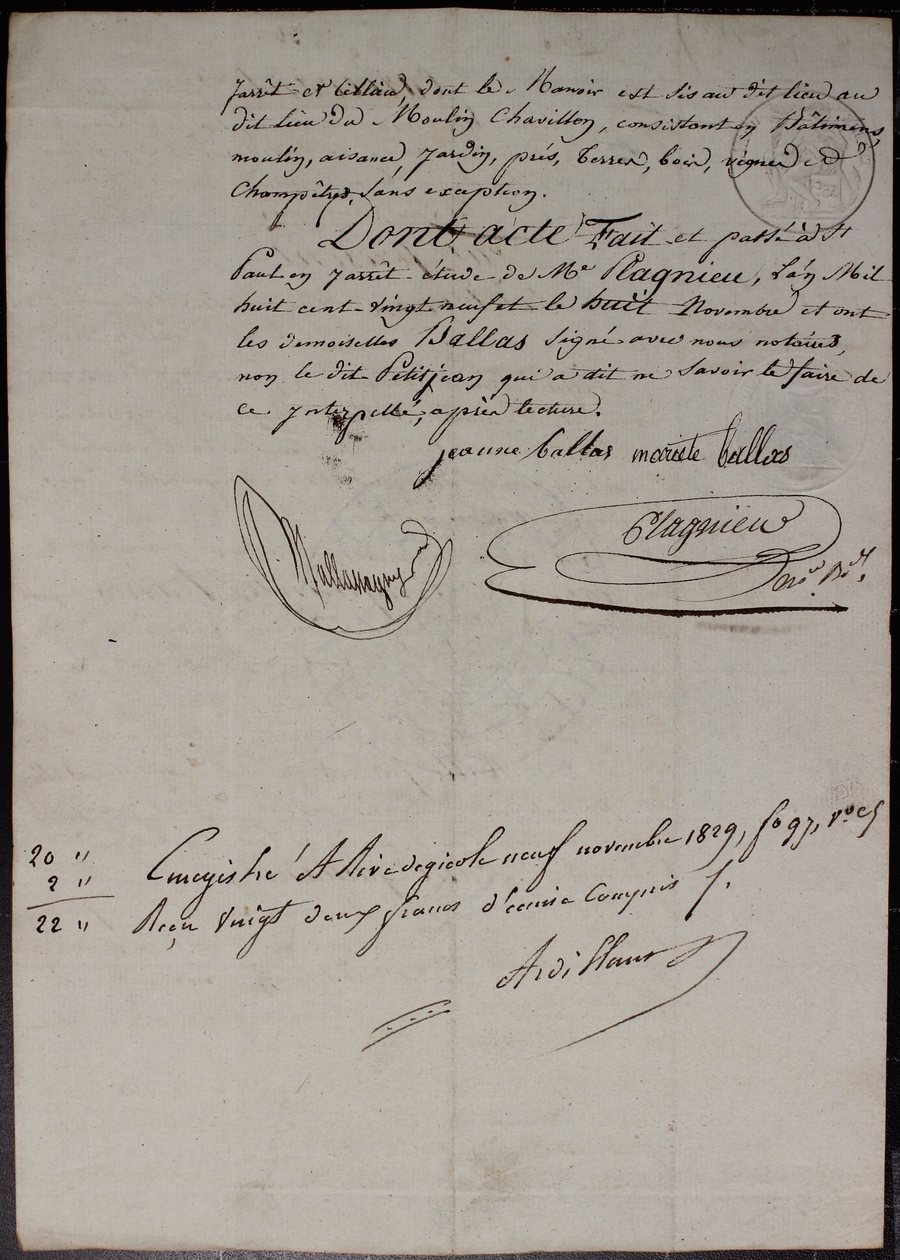 Jarrêt et Cellieu, dont le Manoir est sis au dit lieu au
dit lieu du Moulin Chavillon, consistant en Bâtimens,
moulin, aisance, Jardin, prés, Terres, bois, vignes et
Champêtres, sans exception.
Dont acte Fait et passé à St
Paul en Jarrêt étude de Me Plagnieu, L'an Mil
huit cent vingt neuf et le huit Novembre et ont
les demoiselles Ballas signé avec nous notaires,
non le dit Petitjean qui a dit ne savoir le faire de
ce ynterpellé, après lecture.
jeanne ballas mariete ballas
Plagnieu
20 "
2 "
22 "
Enregistré A Rive de gier le neuf novembre 1829, fo 97, vo c5
Reçu vingt deux francs d'écime compris
Ardillaut